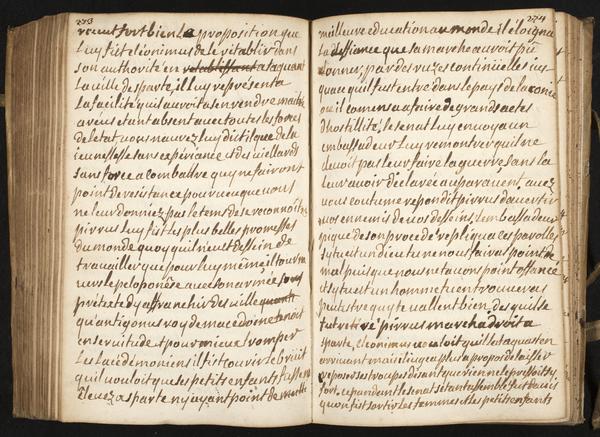 273
receut fort bien la proposition que
luy fit cléonimus de le rétablir dans
son authorité en attaquant
la ville de sparte, il luy representa
la facilité qu'il auroit a s'en rendre maitre
areus etant absent avec toutes les forces
de letat vous naurez luy dit il que de la
ieunesse sans expériance et des viellards
sans force a combattre quy ne fairont
point de resistance pourveu que vous
ne leur donniez pas le tems de se reconnoitre
pirrus luy fist les plus belles promesses
du monde quoy quil neust dessein de
travailler que pour luy même, il tourna
vers le peloponèse avec son armée sous
pretexte dy affranchir des ville
qu'antigonus roy de macedoine tenoit
en servitude et pour mieux tromper
les lacedemoniens il fist courir le bruit
quil vouloit que ses petits enfants fussent
élevez a sparte ny ayant point de
274
meilleure education au monde il éloigna
la deffiance que sa marche auroit pû
donner, par des ruzes continüelles ius
qua ce quil fust entré dans le pays de laconie
ou il comensa a faire de grands actes
d'hostillité, le senat luy envoya un
embassadeur luy remontrer quil ne
devoit pas leur faire la guerre sans la
leur avoir déclarée auparavent, avez
vous coutume repondit pirrus davertir
vos ennemis de vos desseins, lembassadeur
piqué de son procedé repliqua ces parolles
sy tu et un dieu tu ne nous fairas point de
mal puisque nous ne tavons point offancé
et sy tu est un homme tu en trouveras
peutestre quy te vallent bien, des quil se
fut retiré pirrus marcha droit a
sparte, cleonimus vouloit quil lataquast en
arrivant mais il iugea plus a propos de laisser
reposer ses troupes
fort, cependant le senat setant assemblé fut davis
quon fist sortir les femmes et les petits enfants